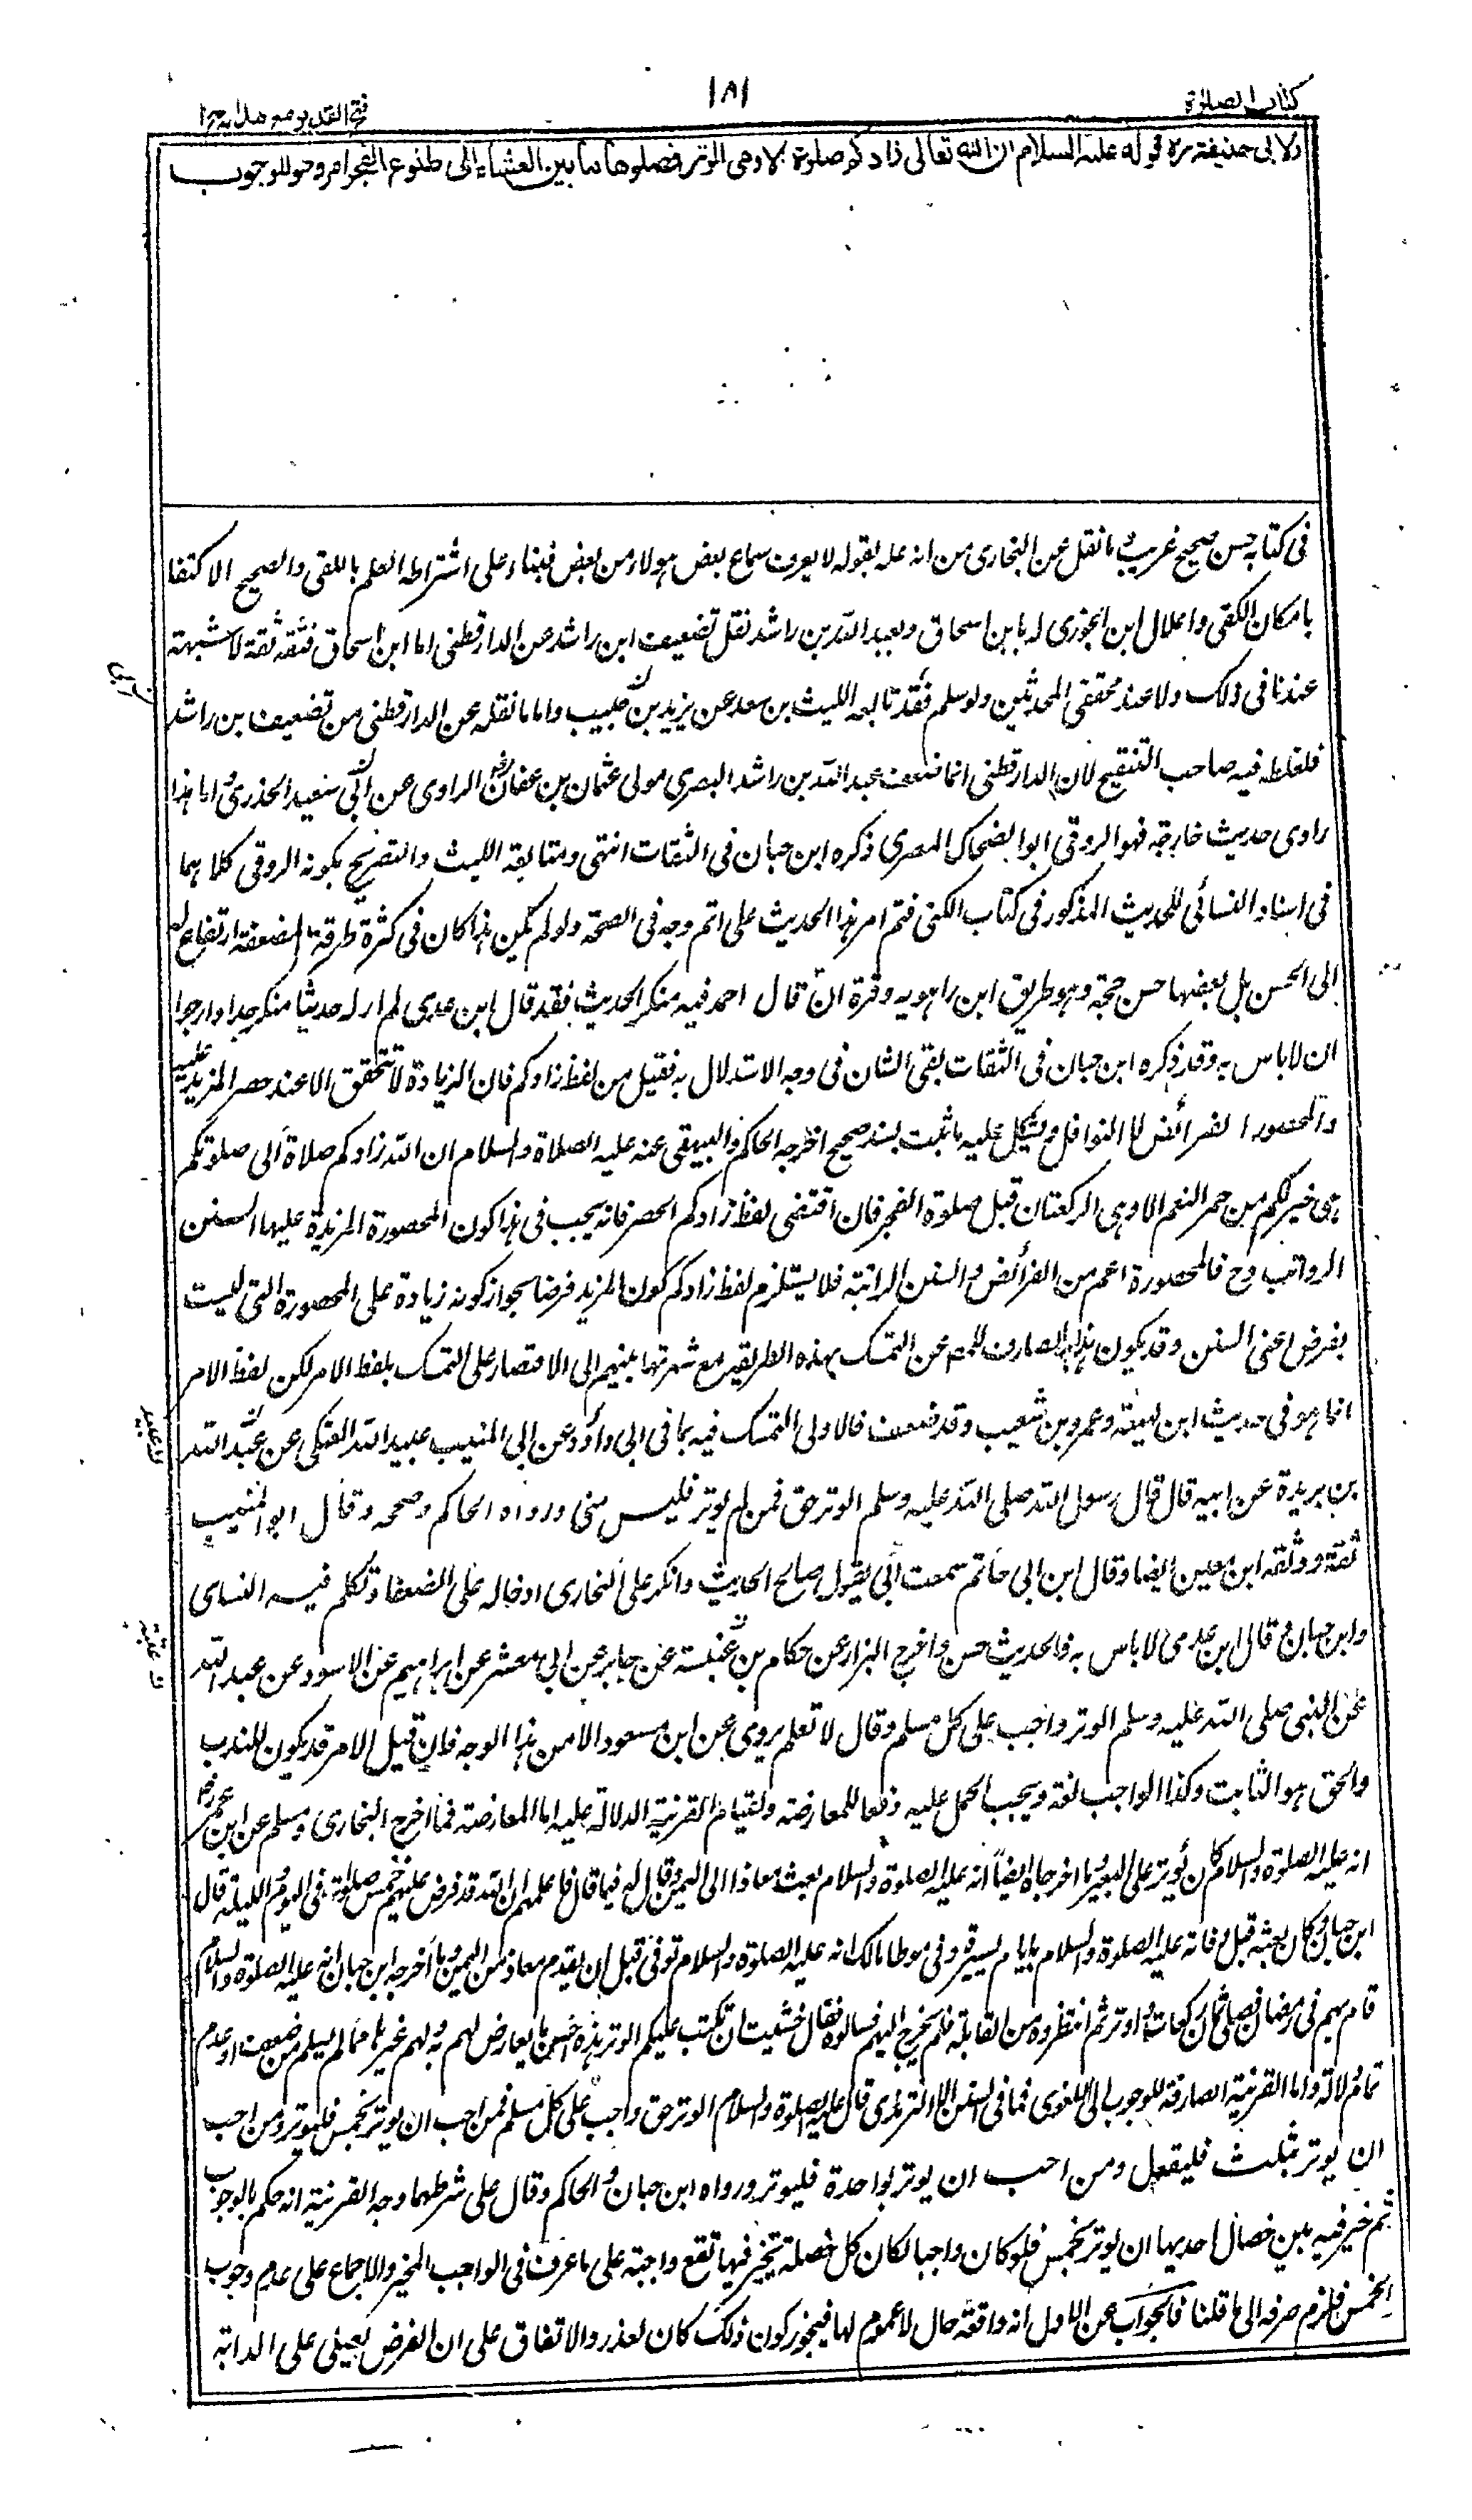 كتاب الصلوة
١٨١
فتح القدير مع هدايه ج١
ولابى حنيفة رح قوله عليه السلام ان الله تعالى زادكم صلوة الا وهى الوتر فصلوها ما بين العشاء الى طلوع الفجر امر وهو للوجوب
فى كتابه حسن صحيح غريب ما نقل عن البخارى من انه علله بقوله لا يعرف سماع بعض هولاء من بعض فبناء على اشتراطه العلم باللقى والصحيح الاكتفا
بامكان اللقى واعلال ابن الجوزى له بابن اسحاق وبعبد الله بن راشد نقل تضعيف ابن راشد عن الدارقطنى اما ابن اسحاق فثقة ثقة لا شبهة
عندنا فى ذلك ولا عند محققى المحدثين ولو سلم فقد تابعه الليث بن سعد عن يزيد بن حبيب واما ما نقله عن الدارقطنى من تضعيف بن راشد
فلغلطه فيه صاحب التنقيح لان الدارقطنى انما ضعف عبد الله بن راشد البصرى مولى عثمان بن عفان رض الراوى عن ابى سعيد الخدرى واما هذا
راوى حديث خارجة فهو الزوفى ابو الضحاك المصرى ذكره ابن حبان فى الثقات انتهى ومتابعة الليث والتصريح بكونه الزوفى كلاهما
فى اسناد النسائى للحديث المذكور فى كتاب الكنى فتم امر هذا الحديث على اتم وجه فى الصحة ولو لم يكن هذا كان فى كثرة طرقه المضعفة ارتفاع له
الى الحسن بل بعضها حسن حجة وهو طريق ابن راهويه وقرة ان قال احمد فيه منكر الحديث فقد قال ابن عدى لم ار له حديثا منكر جدا وارجوا
ان لا باس به وقد ذكره ابن حبان فى الثقات بقى الشان فى وجه الاستدلال به فقيل من لفظ زادكم فان الزيادة لا تتحقق الا عند حصر المزيد عليه
والمحصور الفرائض لا النوافل ويشكل عليه ما ثبت بسند صحيح اخرجه الحاكم والبيهقى عنه عليه الصلاة والسلام ان الله زادكم صلاة الى صلوتكم
هى خير لكم من حمر النعم الا وهى الركعتان قبل صلوة الفجر فان اقتضى لفظ زادكم الحصر فانه يجب فى هذا كون المحصورة المزيدة عليها السنن
الرواتب وح فالمحصورة اعم من الفرائض والسنن الراتبة فلا يستلزم لفظ زادكم كون المزيد فرضا لجواز كونه زيادة على المحصورة التى ليست
بفرض اعنى السنن وقد يكون هذا الصارف للمص عن التمسك بهذه الطريقة مع شهرتها بينهم الى الاقتصار على التمسك بلفظ الامر لكن لفظ الامر
انما هو فى حديث ابن لهيعة وعمرو بن شعيب وقد ضعف فالاولى التمسك فيه بما فى ابى داؤد عن ابى المنيب عبيد الله العتكى عن عبد الله
بن بريدة عن ابيه قال قال رسول الله صلى الله عليه وسلم الوتر حق فمن لم يوتر فليس منى ورواه الحاكم وصححه وقال ابو المنيب
ثقة ووثقه ابن معين ايضا وقال ابن ابى حاتم سمعت ابى يقول صالح الحديث وانكر على البخارى ادخاله على الضعفاء وتكلم فيه النساى
وابن حبان وقال ابن عدى لا باس به فالحديث حسن واخرج البزار عن حكام بن عنبسة عن جابر عن ابى معشر عن ابراهيم عن الاسود عن عبد الله
عن النبى صلى الله عليه وسلم الوتر واجب على كل مسلم وقال لا نعلم يروى عن ابن مسعود الا من هذا الوجه فان قيل الامر قد يكون للندب
والحق هو الثابت وكذا الواجب لغة ويجب الحمل عليه دفعا للمعارضة ولقيام القرينة الدلالة عليه اما المعارضة فما اخرج البخارى ومسلم عن ابن عمر رض
انه عليه الصلوة والسلام كان يوتر على البعير وما اخرجاه ايضا انه عليه الصلوة والسلام بعث معاذا الى اليمن وقال له فيما قال فاعلمهم ان الله قد فرض عليهم خمس صلوات فى اليوم والليلة قال
ابن حبان وكان بعثه قبل وفاته عليه الصلوة والسلام بايام يسيرة وفى موطا مالك انه عليه الصلوة والسلام توفى قبل ان يقدم معاذ من اليمن وما اخرجه ابن حبان انه عليه الصلوة والسلام
قام بهم فى رمضان فصلى ثمان ركعات واوتر ثم انتظروه من القابلة فلم يخرج اليهم فسالوه فقال خشيت ان تكتب عليكم الوتر هذه احسن ما يعارض لهم به ولهم غيرها مما لم يسلم من ضعف او عدم
تمام دلالة واما القرينة الصارفة للوجوب الى اللغوى فما فى السنن الا الترمذى قال عليه الصلوة والسلام الوتر حق واجب على كل مسلم فمن احب ان يوتر بخمس فليوتر ومن احب
ان يوتر بثلث فليفعل ومن احب ان يوتر بواحدة فليوتر ورواه ابن حبان والحاكم وقال على شرطهما وجه القرينة انه حكم بالوجوب
ثم خير فيه بين خصال احديها ان يوتر بخمس فلو كان واجبا لكان كل خصلة تخير فيها تقع واجبة على ما عرف فى الواجب المخير والاجماع على عدم وجوب
الخمس فلزم صرفه الى ما قلنا فالجواب عن الاول انه واقعة حال لا عموم لها فيجوز كون ذلك كان لعذر والاتفاق على ان الفرض يصلى على الدابة